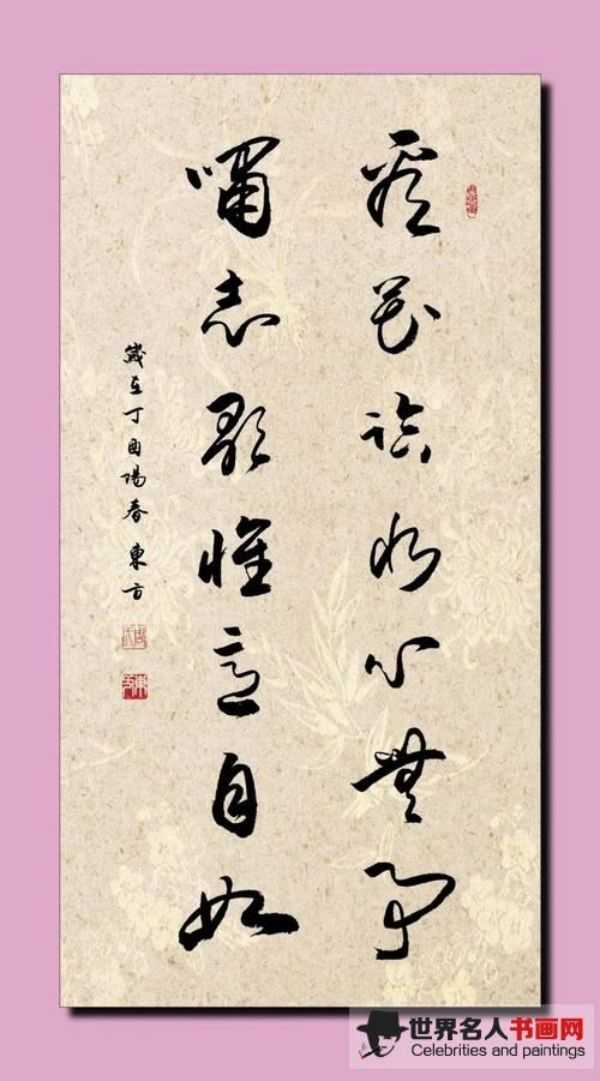 看花臨水心無事
嘯志歌懷意自如
歲在丁酉陽春 東方
世界名人书画网
Celebrities and paintings